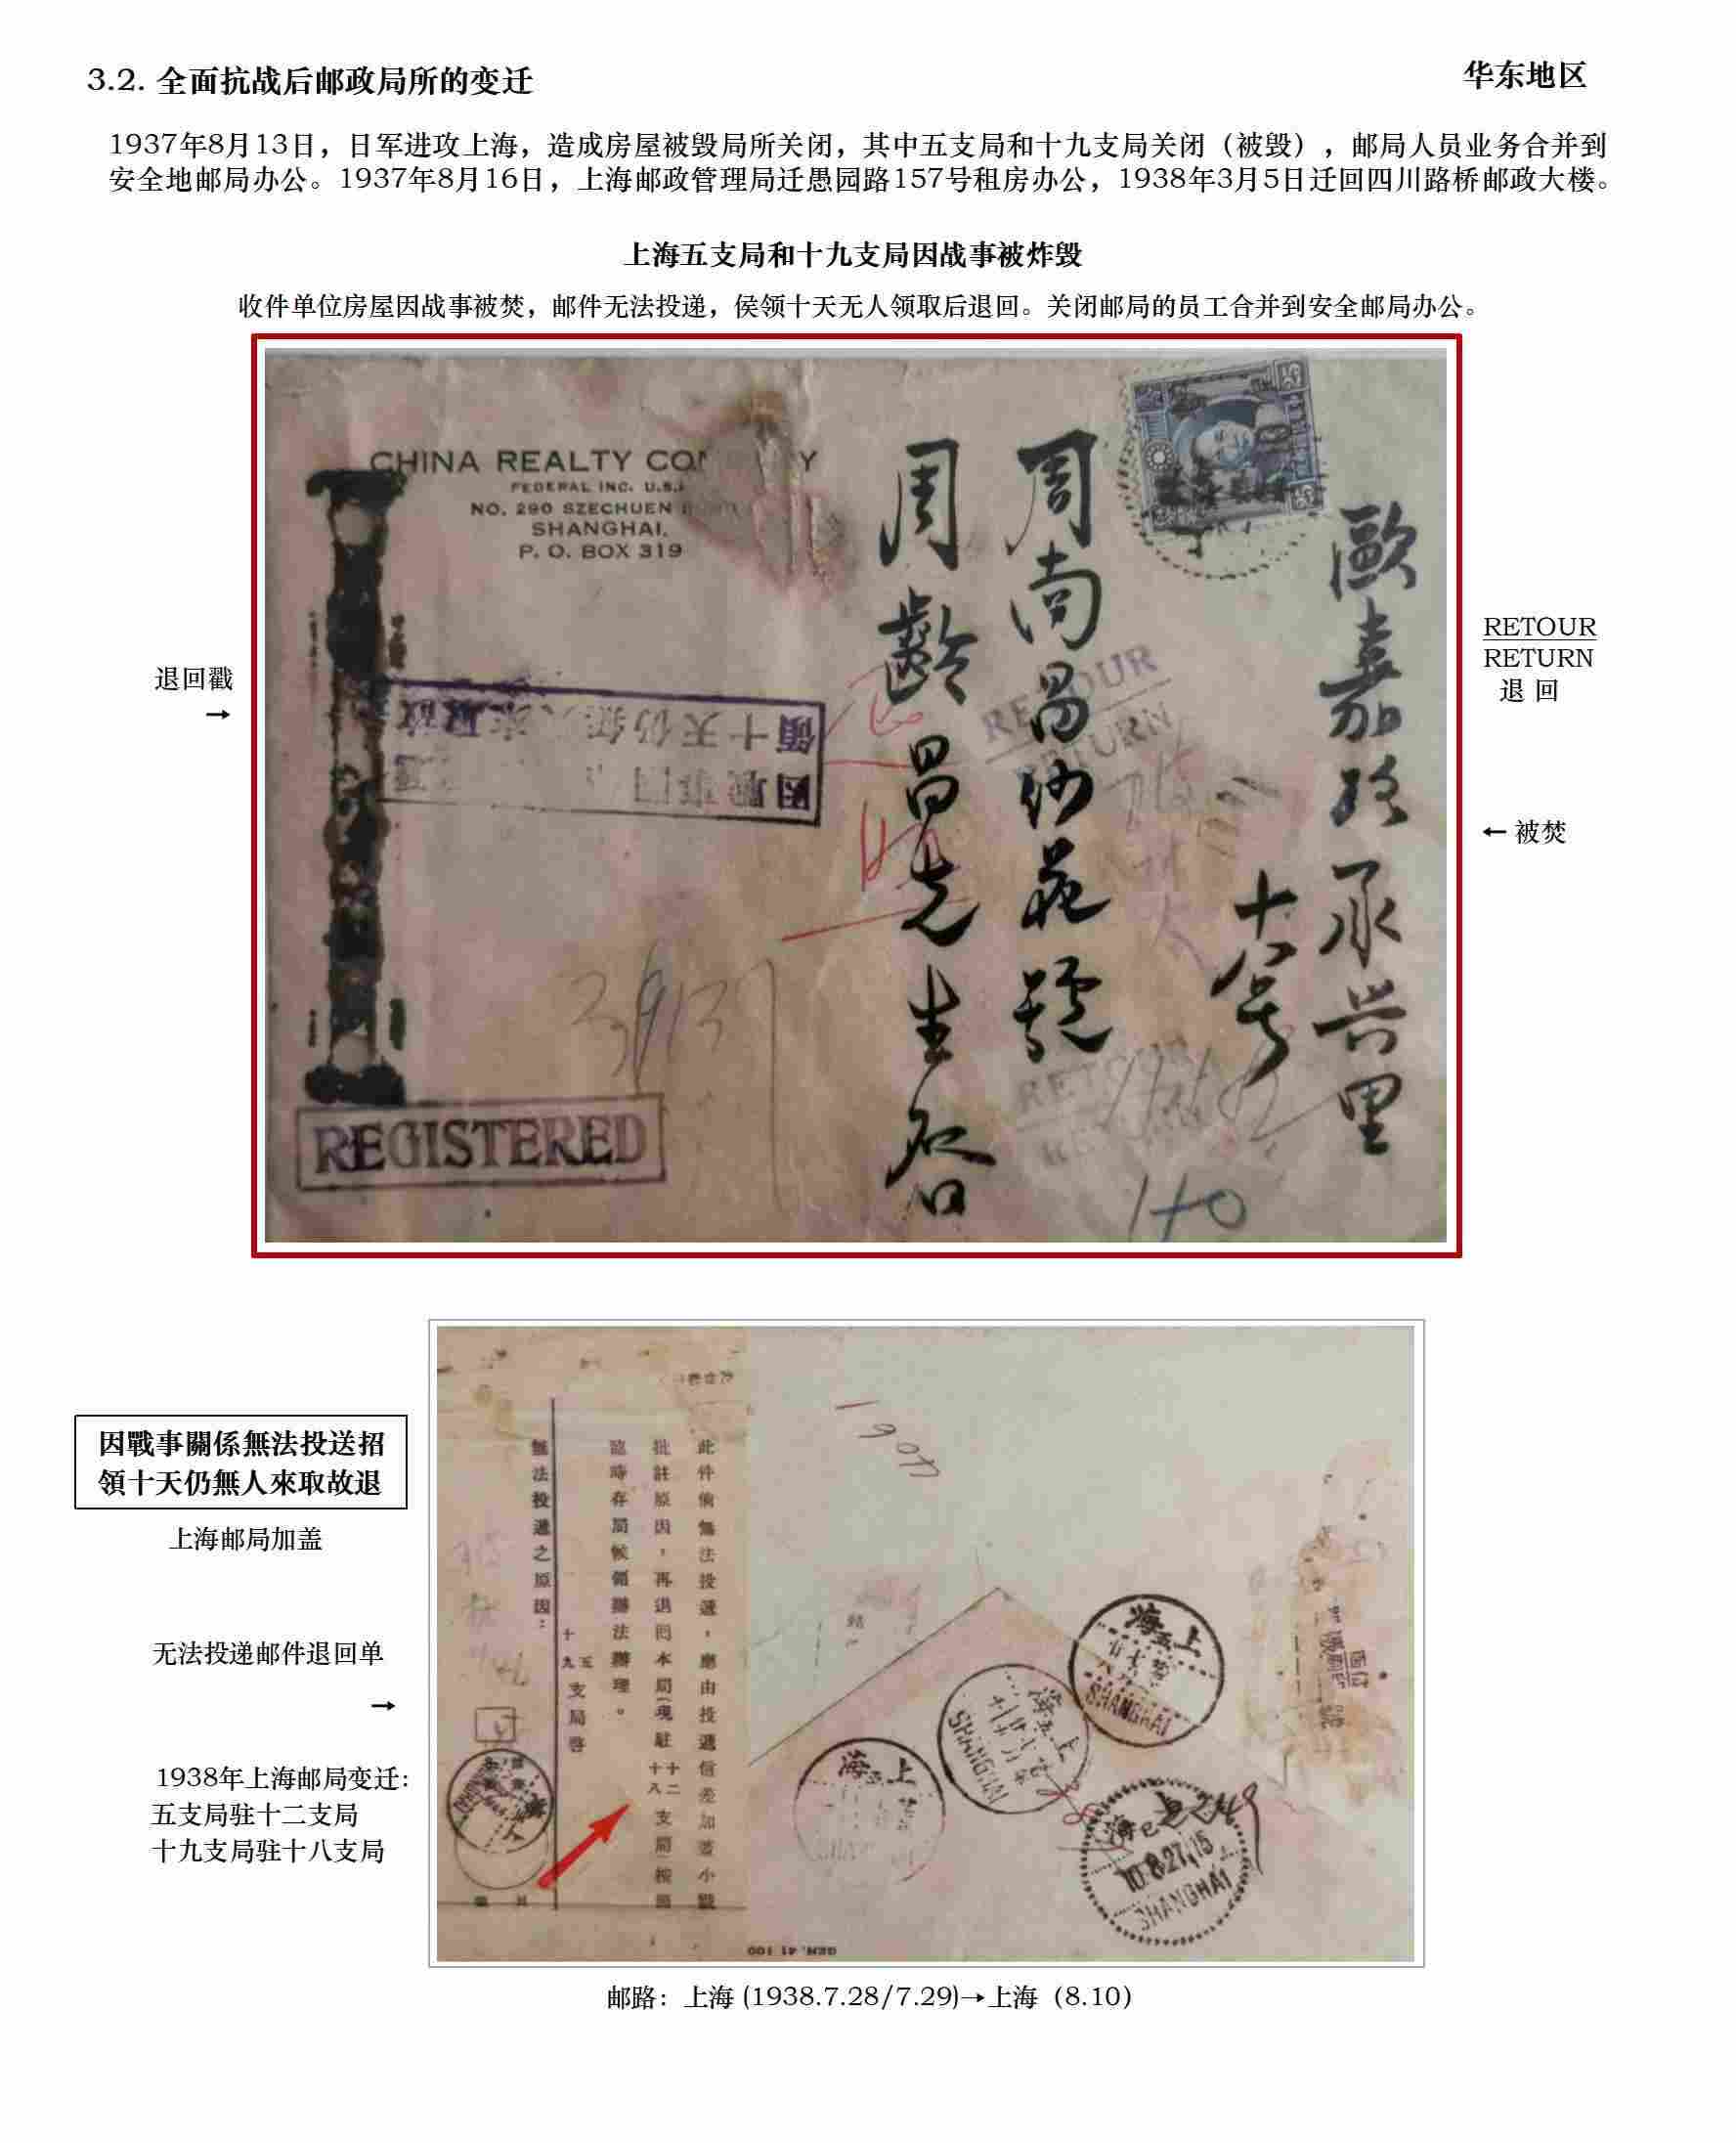 3.2. 全面抗战后邮政局所的变迁
华东地区
1937年8月13日，日军进攻上海，造成房屋被毁局所关闭，其中五支局和十九支局关闭（被毁），邮局人员业务合并到
安全地邮局办公。1937年8月16日，上海邮政管理局迁愚园路157号租房办公，1938年3月5日迁回四川路桥邮政大楼。
上海五支局和十九支局因战事被炸毁
收件单位房屋因战事被焚，邮件无法投递，侯领十天无人领取后退回。关闭邮局的员工合并到安全邮局办公。
CHINA REALTY
FEDERAL INC. U.S.
NO. 290 SZECHUEN
SHANGHAI.
P. O. BOX 319
歐嘉路承兴里
十八号
周南昌纱花號
周齡昌先生啓
RETOUR
RETURN
領十天仍無
REGISTERED
RETOUR
RETURN
140
退回戳
→
RETOUR
RETURN
退 回
← 被焚
因戰事關係無法投送招
領十天仍無人來取故退
上海邮局加盖
无法投递邮件退回单
→
1938年上海邮局变迁：
五支局驻十二支局
十九支局驻十八支局
此件倘無法投遞，應由投遞信差加蓋小戳
批註原因，再退囘本局（現駐十二十八支局）按照
臨時存局候領辦法辦理。
五十九支局啓
無法投遞之原因：
上海
SHANGHAI
上海
SHANGHAI
上海
上海
10.8.27.15
SHANGHAI
邮路：上海 (1938.7.28/7.29)→上海（8.10）